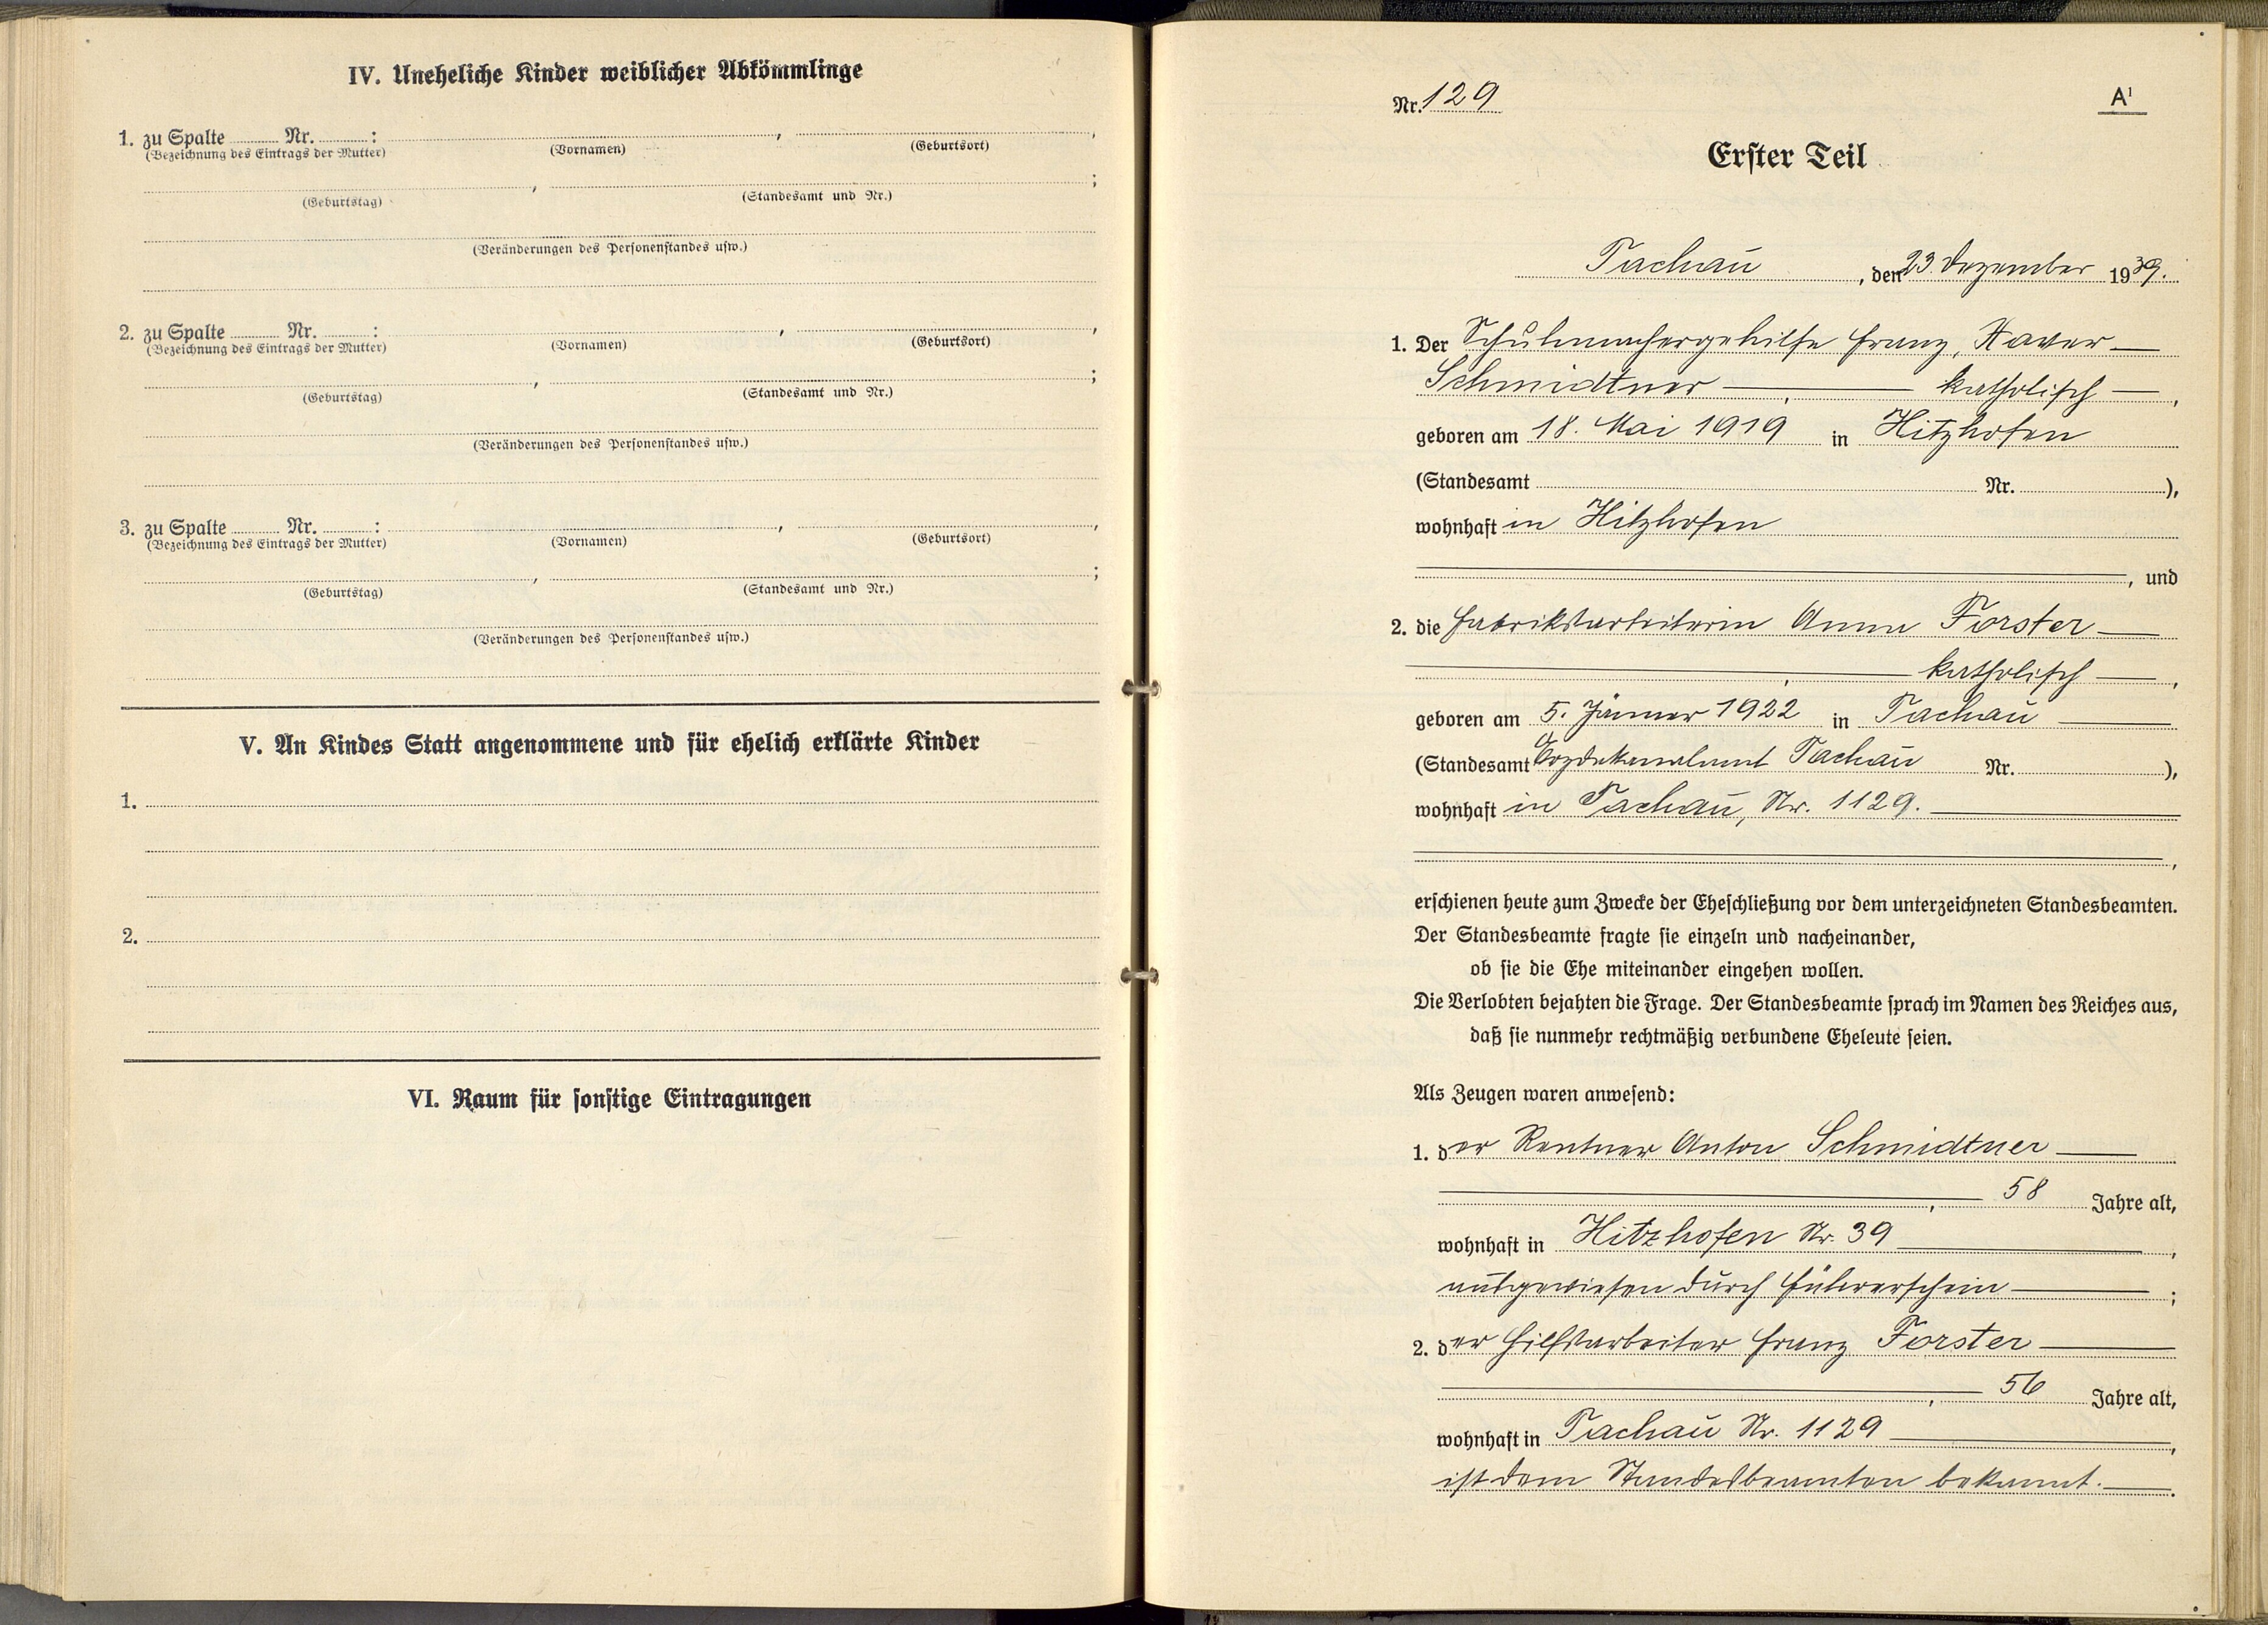 IV. Uneheliche Kinder weiblicher Abkömmlinge
1. zu Spalte ........ Nr. ........ : ........ , ........ ,
(Bezeichnung des Eintrags der Mutter) (Vornamen) (Geburtsort)
........ , ........ ;
(Geburtstag) (Standesamt und Nr.)
(Veränderungen des Personenstandes usw.)
2. zu Spalte ........ Nr. ........ : ........ , ........ ,
(Bezeichnung des Eintrags der Mutter) (Vornamen) (Geburtsort)
........ , ........ ;
(Geburtstag) (Standesamt und Nr.)
(Veränderungen des Personenstandes usw.)
3. zu Spalte ........ Nr. ........ : ........ , ........ ,
(Bezeichnung des Eintrags der Mutter) (Vornamen) (Geburtsort)
........ , ........ ;
(Geburtstag) (Standesamt und Nr.)
(Veränderungen des Personenstandes usw.)
V. An Kindes Statt angenommene und für ehelich erklärte Kinder
1.
2.
VI. Raum für sonstige Eintragungen
Nr. 129
A¹
Erster Teil
Tachau, den 23. Dezember 1939.
1. Der Schuhmachergehilfe Franz, Xaver
Schmidtner, katholisch,
geboren am 18. Mai 1919 in Hitzhofen
(Standesamt ........ Nr. ........),
wohnhaft in Hitzhofen
, und
2. die Fabriksarbeiterin Anna Forster
, katholisch,
geboren am 5. Jänner 1922 in Tachau
(Standesamt Erzdekanalamt Tachau Nr. ........),
wohnhaft in Tachau, Nr. 1129.
,
erschienen heute zum Zwecke der Eheschließung vor dem unterzeichneten Standesbeamten.
Der Standesbeamte fragte sie einzeln und nacheinander,
ob sie die Ehe miteinander eingehen wollen.
Die Verlobten bejahten die Frage. Der Standesbeamte sprach im Namen des Reiches aus,
daß sie nunmehr rechtmäßig verbundene Eheleute seien.
Als Zeugen waren anwesend:
1. der Rentner Anton Schmidtner
, 58 Jahre alt,
wohnhaft in Hitzhofen Nr. 39,
ausgewiesen durch Führerschein;
2. der Hilfsarbeiter Franz Forster
, 56 Jahre alt,
wohnhaft in Tachau Nr. 1129,
ist dem Standesbeamten bekannt.